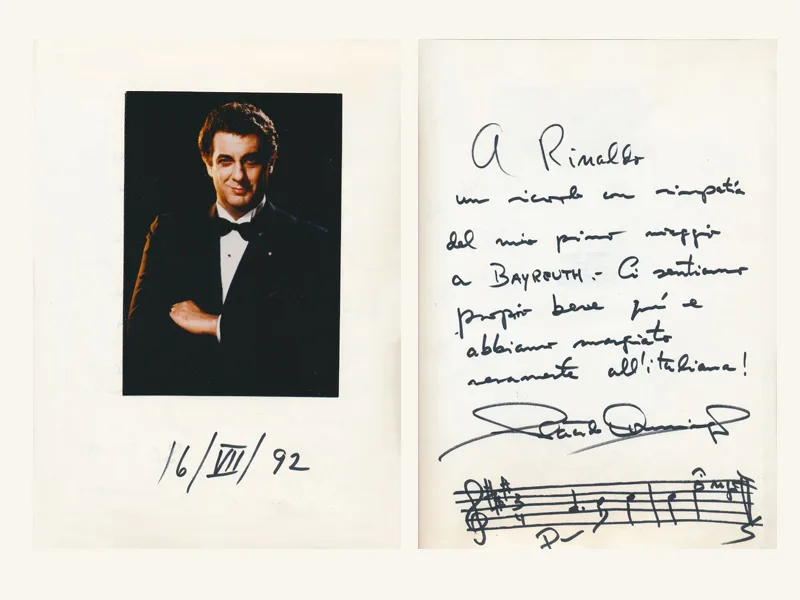 16/VII/92
A Rinaldo
un ricordo con simpatia
del mio primo viaggio
a BAYREUTH.- Ci sentiamo
proprio bene quí e
abbiamo mangiato
veramente all'italiana!
Placido Domingo
3
4